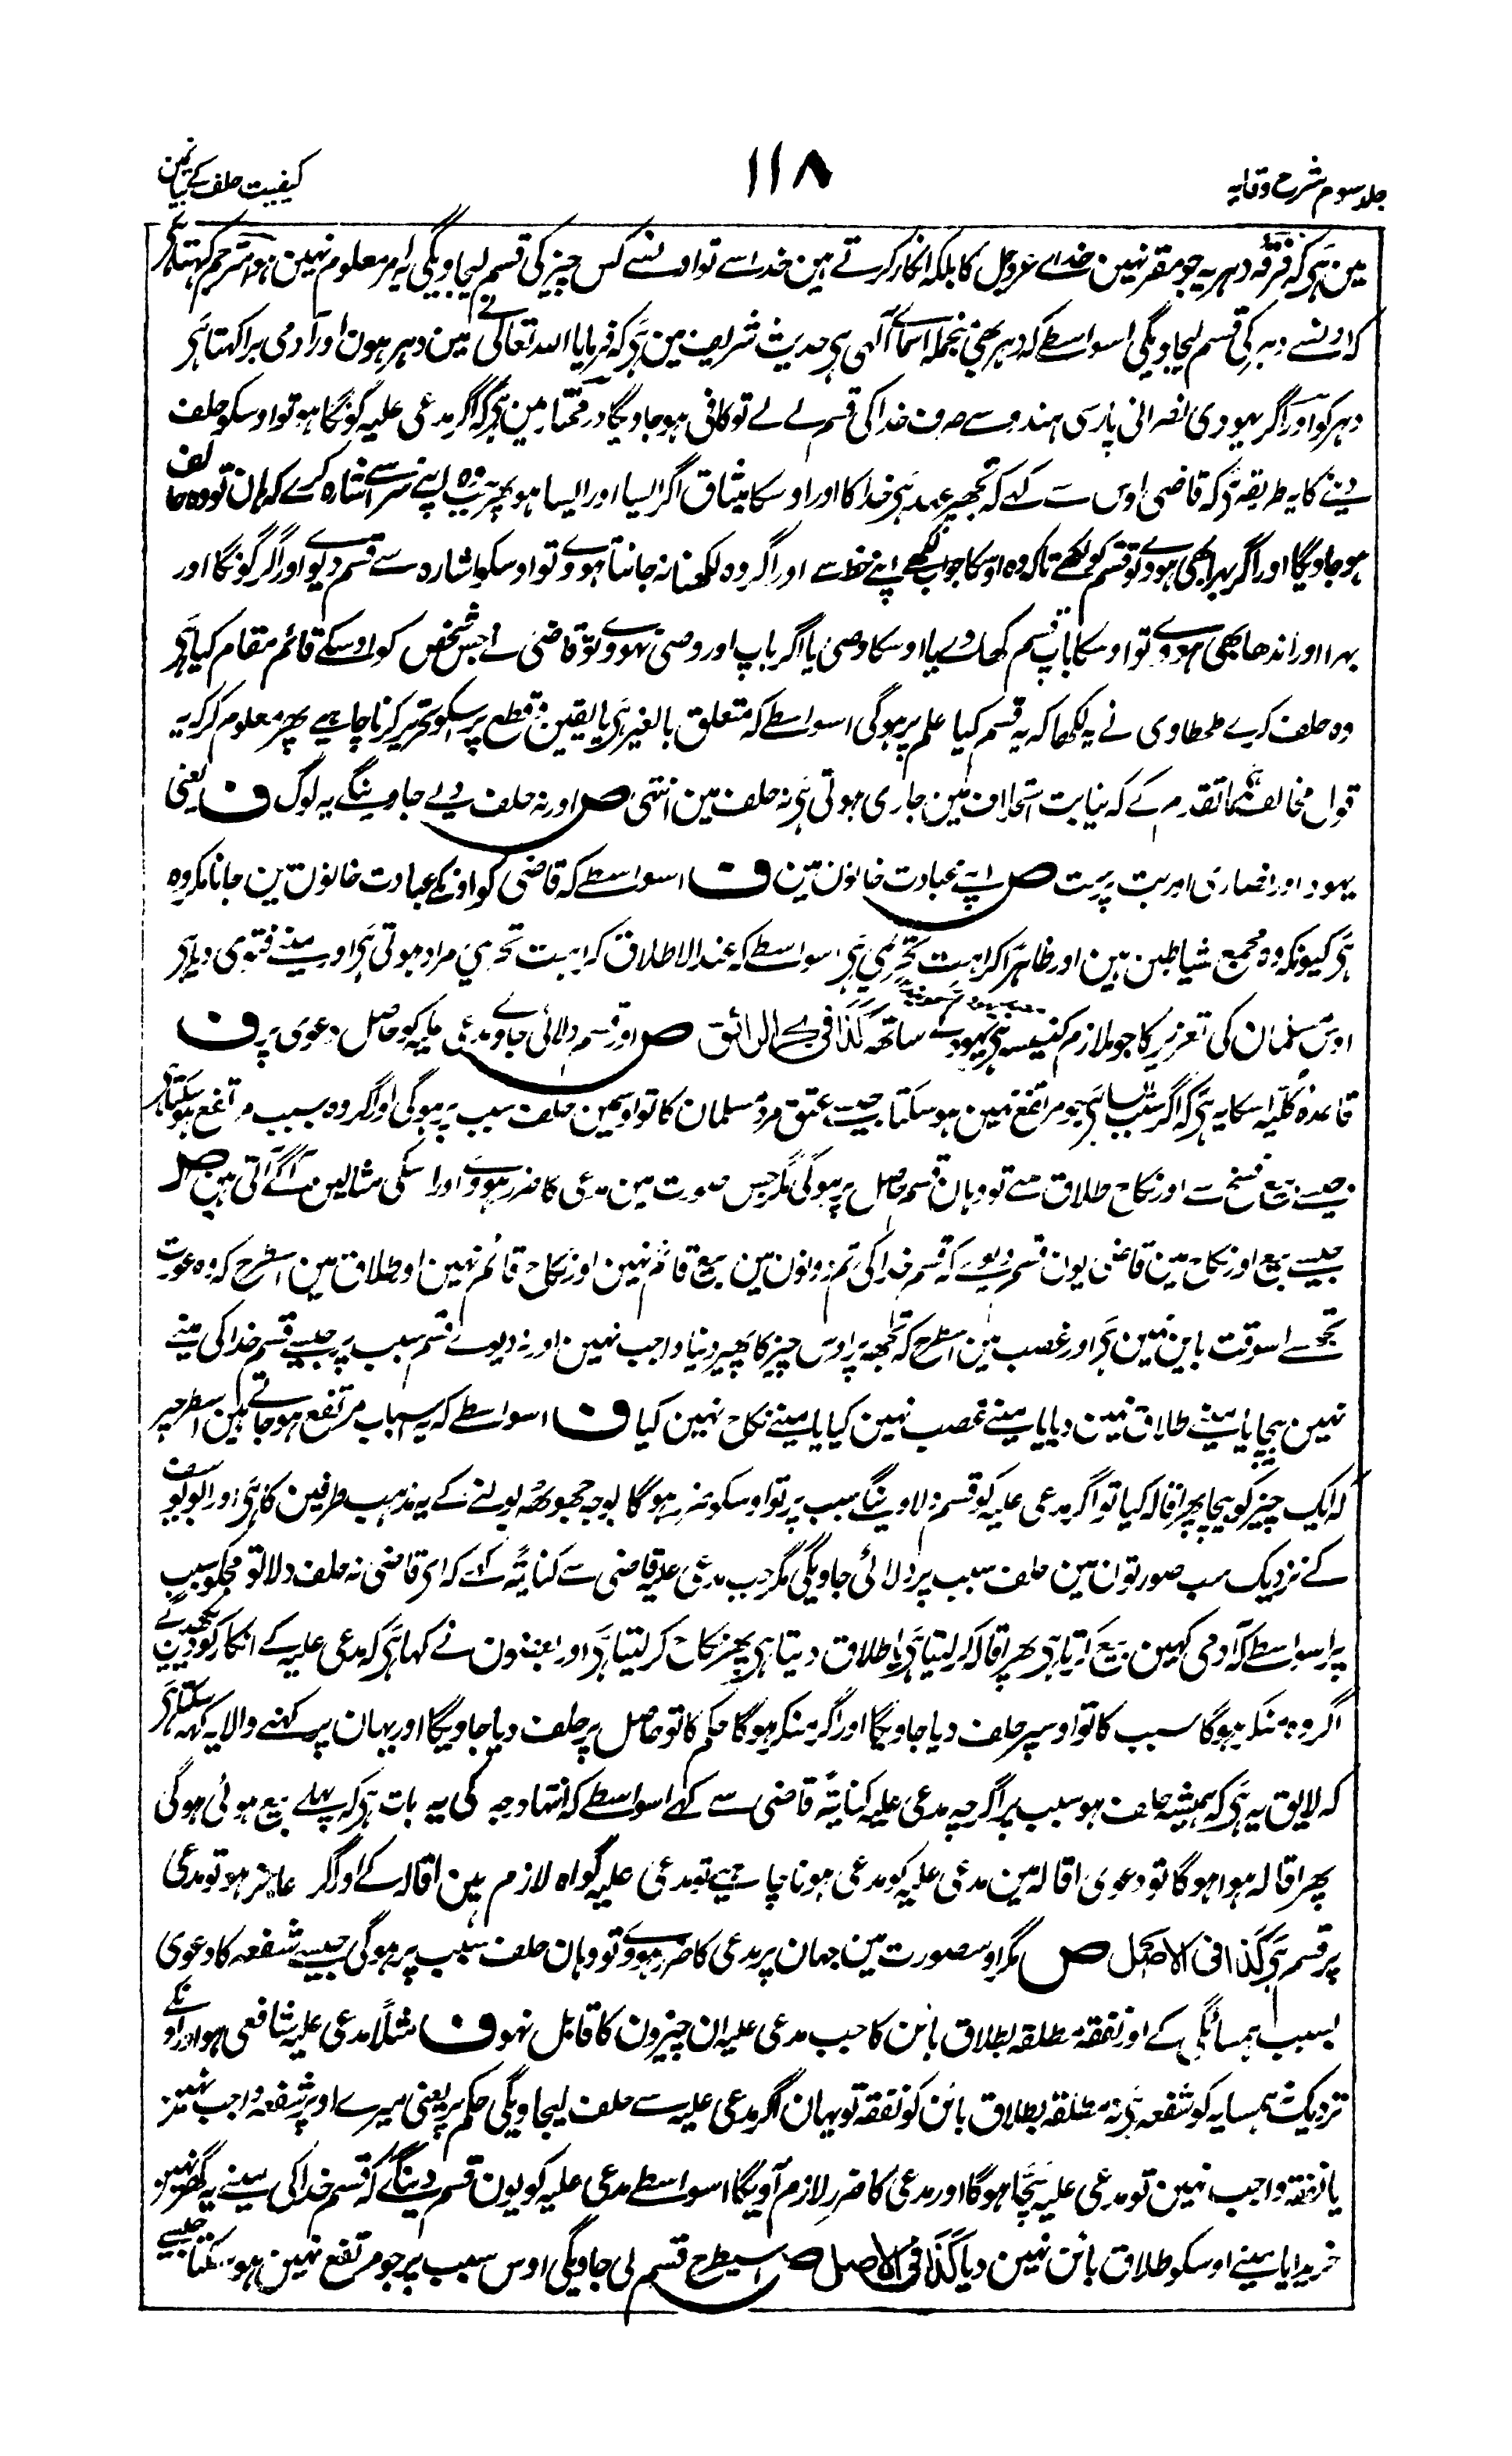 جلد سوم شرح وقایہ
۱۱۸
کیفیت حلف کے بیانمین
مین ہی کہ فرقہ دہریہ جو مقر نہین خداے عزوجل کا بلکہ انکار کرتے ہین خدا سے تو اونسے کس چیز کی قسم لیجاویگی یہ امر معلوم نہین ہوا مترجم کہتا ہی
کہ اونسے دہر کی قسم لیجاویگی اسواسطے کہ دہر بھی منجملہ اسماے آلہی ہی حدیث شریف مین ہی کہ فرمایا اللہ تعالی نے مین دہر ہون اور آدمی برا کہتا ہی
دہر کو اور اگر یہودی نصرانی پارسی ہندو سے صرف خدا کی قسم لے لے تو کافی ہو جاویگا درمختار مین ہی کہ اگر مدعی علیہ گونگا ہو تو اوسکو حلف
دینے کا یہ طریقہ ہی کہ قاضی اوس سے کہے کہ تجھپر عہد ہی خدا کا اور اوسکا میثاق اگر ایسا اور ایسا ہو پھر جب وہ اپنے سر سے اشارہ کرے کہ ہان تو وہ حالف
ہو جاویگا اور اگر بہرا بھی ہووے تو قسم کو لکھے تاکہ وہ اوسکا جواب لکھے اپنے خط سے اور اگر وہ لکھنا نہ جانتا ہووے تو اوسکو اشارہ سے قسم دیوے اور اگر گونگا اور
بہرا اور اندھا بھی ہووے تو اوسکا باپ قسم کھاوے یا اوسکا وصی یا اگر باپ اور وصی نہووے تو قاضی نے جس شخص کو اوسکے قائم مقام کیا ہی
وہ حلف کرے طحطاوی نے یہ لکھا کہ یہ قسم کیا علم پر ہوگی اسواسطے کہ متعلق بالغیر ہی یا یقین و قطع پر اسکو تحریر کرنا چاہیے پھر معلوم کر کہ یہ
قول مخالف ہی ماتقدم کے کہ نیابت استحلاف مین جاری ہوتی ہی نہ حلف مین انتہی ص اور نہ حلف دیے جاوینگے یہ لوگ ف یعنی
یہود اور نصاری اور بت پرست ص اپنے عبادت خانون مین ف اسواسطے کہ قاضی کو اونکے عبادت خانون مین جانا مکروہ
ہی کیونکہ وہ مجمع شیاطین ہین اور ظاہرا کراہت تحریمی ہی اسواسطے کہ عند الاطلاق کراہت تحریمی مراد ہوتی ہی اور مینے فتوی دیا ہی
اوس مسلمان کی تعزیر کا جو ملازم کنیسہ ہی یہود کے ساتھ کذا فی البحر الرائق ص اور قسم دلائی جاوے مدعی علیہ کو حاصل دعوی پر ف
قاعدہ کلیہ اسکا یہ ہی کہ اگر سبب ایسا ہی جو مرتفع نہین ہو سکتا جیسے عتق مرد مسلمان کا تو اوسمین حلف سبب پر ہوگی اور اگر وہ سبب مرتفع ہو سکتا ہی
جیسے بیع فسخ سے اور نکاح طلاق سے تو وہان قسم حاصل پر ہوگی مگر جس صورت مین مدعی کا ضرر ہووے اور اسکی مثالین آگے آتی ہین ص
جیسے بیع اور نکاح مین قاضی یون قسم دیوے کہ قسم خدا کی تم دونون مین بیع قائم نہین اور نکاح قائم نہین اور طلاق مین اسطرح کہ وہ عورت
تجھسے اسوقت باین نہین ہی اور غصب مین اسطرح کہ تجھ پر اوس چیز کا پھیر دینا واجب نہین اور نہ دیوے قسم سبب پر جیسے قسم خدا کی مینے
نہین بیچا یا مینے طلاق نہین دیا یا مینے غصب نہین کیا یا مینے نکاح نہین کیا ف اسواسطے کہ یہ اسباب مرتفع ہو جاتے ہین اسطرحپر
کہ ایک چیز کو بیچا پھر اقالہ کیا تو اگر مدعی علیہ کو قسم دلاوینگے سبب پر تو اوسکو ضرر ہوگا بوجہ جھوٹھ بولنے کے یہ مذہب طرفین کا ہی اور ابو یوسف
کے نزدیک سب صورتون مین حلف سبب پر دلائی جاویگی مگر جب مدعی علیہ قاضی سے کنایۃً کہے کہ ای قاضی نہ حلف دلا تو مجھکو سبب
پر اسواسطے کہ آدمی کہین بیع کرتا ہی پھر اقالہ کر لیتا ہی یا طلاق دیتا ہی پھر نکاح کر لیتا ہی اور بعضون نے کہا ہی کہ مدعی علیہ کے انکار کو دیکھینگے
اگر وہ منکر ہوگا سبب کا تو اوسپر حلف دیا جاویگا اور اگر منکر ہوگا حکم کا تو حاصل پر حلف دیا جاویگا اور یہان پر کہنے والا یہ کہہ سکتا ہی
کہ لایق یہ ہی کہ ہمیشہ حلف ہو سبب پر اگرچہ مدعی علیہ کنایۃً قاضی سے کہے اسواسطے کہ انتہا درجہ کی یہ بات ہی کہ پہلے بیع ہوئی ہوگی
پھر اقالہ ہوا ہوگا تو دعوی اقالہ مین مدعی علیہ کو مدعی ہونا چاہیے تو مدعی علیہ گواہ لازم ہین اقالہ کے اور اگر عاجز ہو تو مدعی
پر قسم ہی کذا فی الاصل ص مگر اوس صورت مین جہان پر مدعی کا ضرر ہووے تو وہان حلف سبب پر ہوگی جیسے شفعہ کا دعوی
بسبب ہمسائگی کے اور نفقہ مطلقہ بطلاق بائن کا جب مدعی علیہ ان چیزون کا قابل نہو ف مثلاً مدعی علیہ شافعی ہو اور اونکے
نزدیک نہ ہمسایہ کو شفعہ ہی نہ مطلقہ بطلاق بائن کو نفقہ تو یہان اگر مدعی علیہ سے حلف لیجاویگی حکم پر یعنی میرے اوپر شفعہ واجب نہین
یا نفقہ واجب نہین تو مدعی علیہ سچا ہوگا اور مدعی کا ضرر لازم آویگا اسواسطے مدعی علیہ کو یون قسم دینگے کہ قسم خدا کی مینے یہ گھر نہین
خریدا یا مینے اوسکو طلاق بائن نہین دیا کذا فی الاصل ص اسیطرح قسم لی جاویگی اوس سبب پر جو مرتفع نہین ہو سکتا جیسے